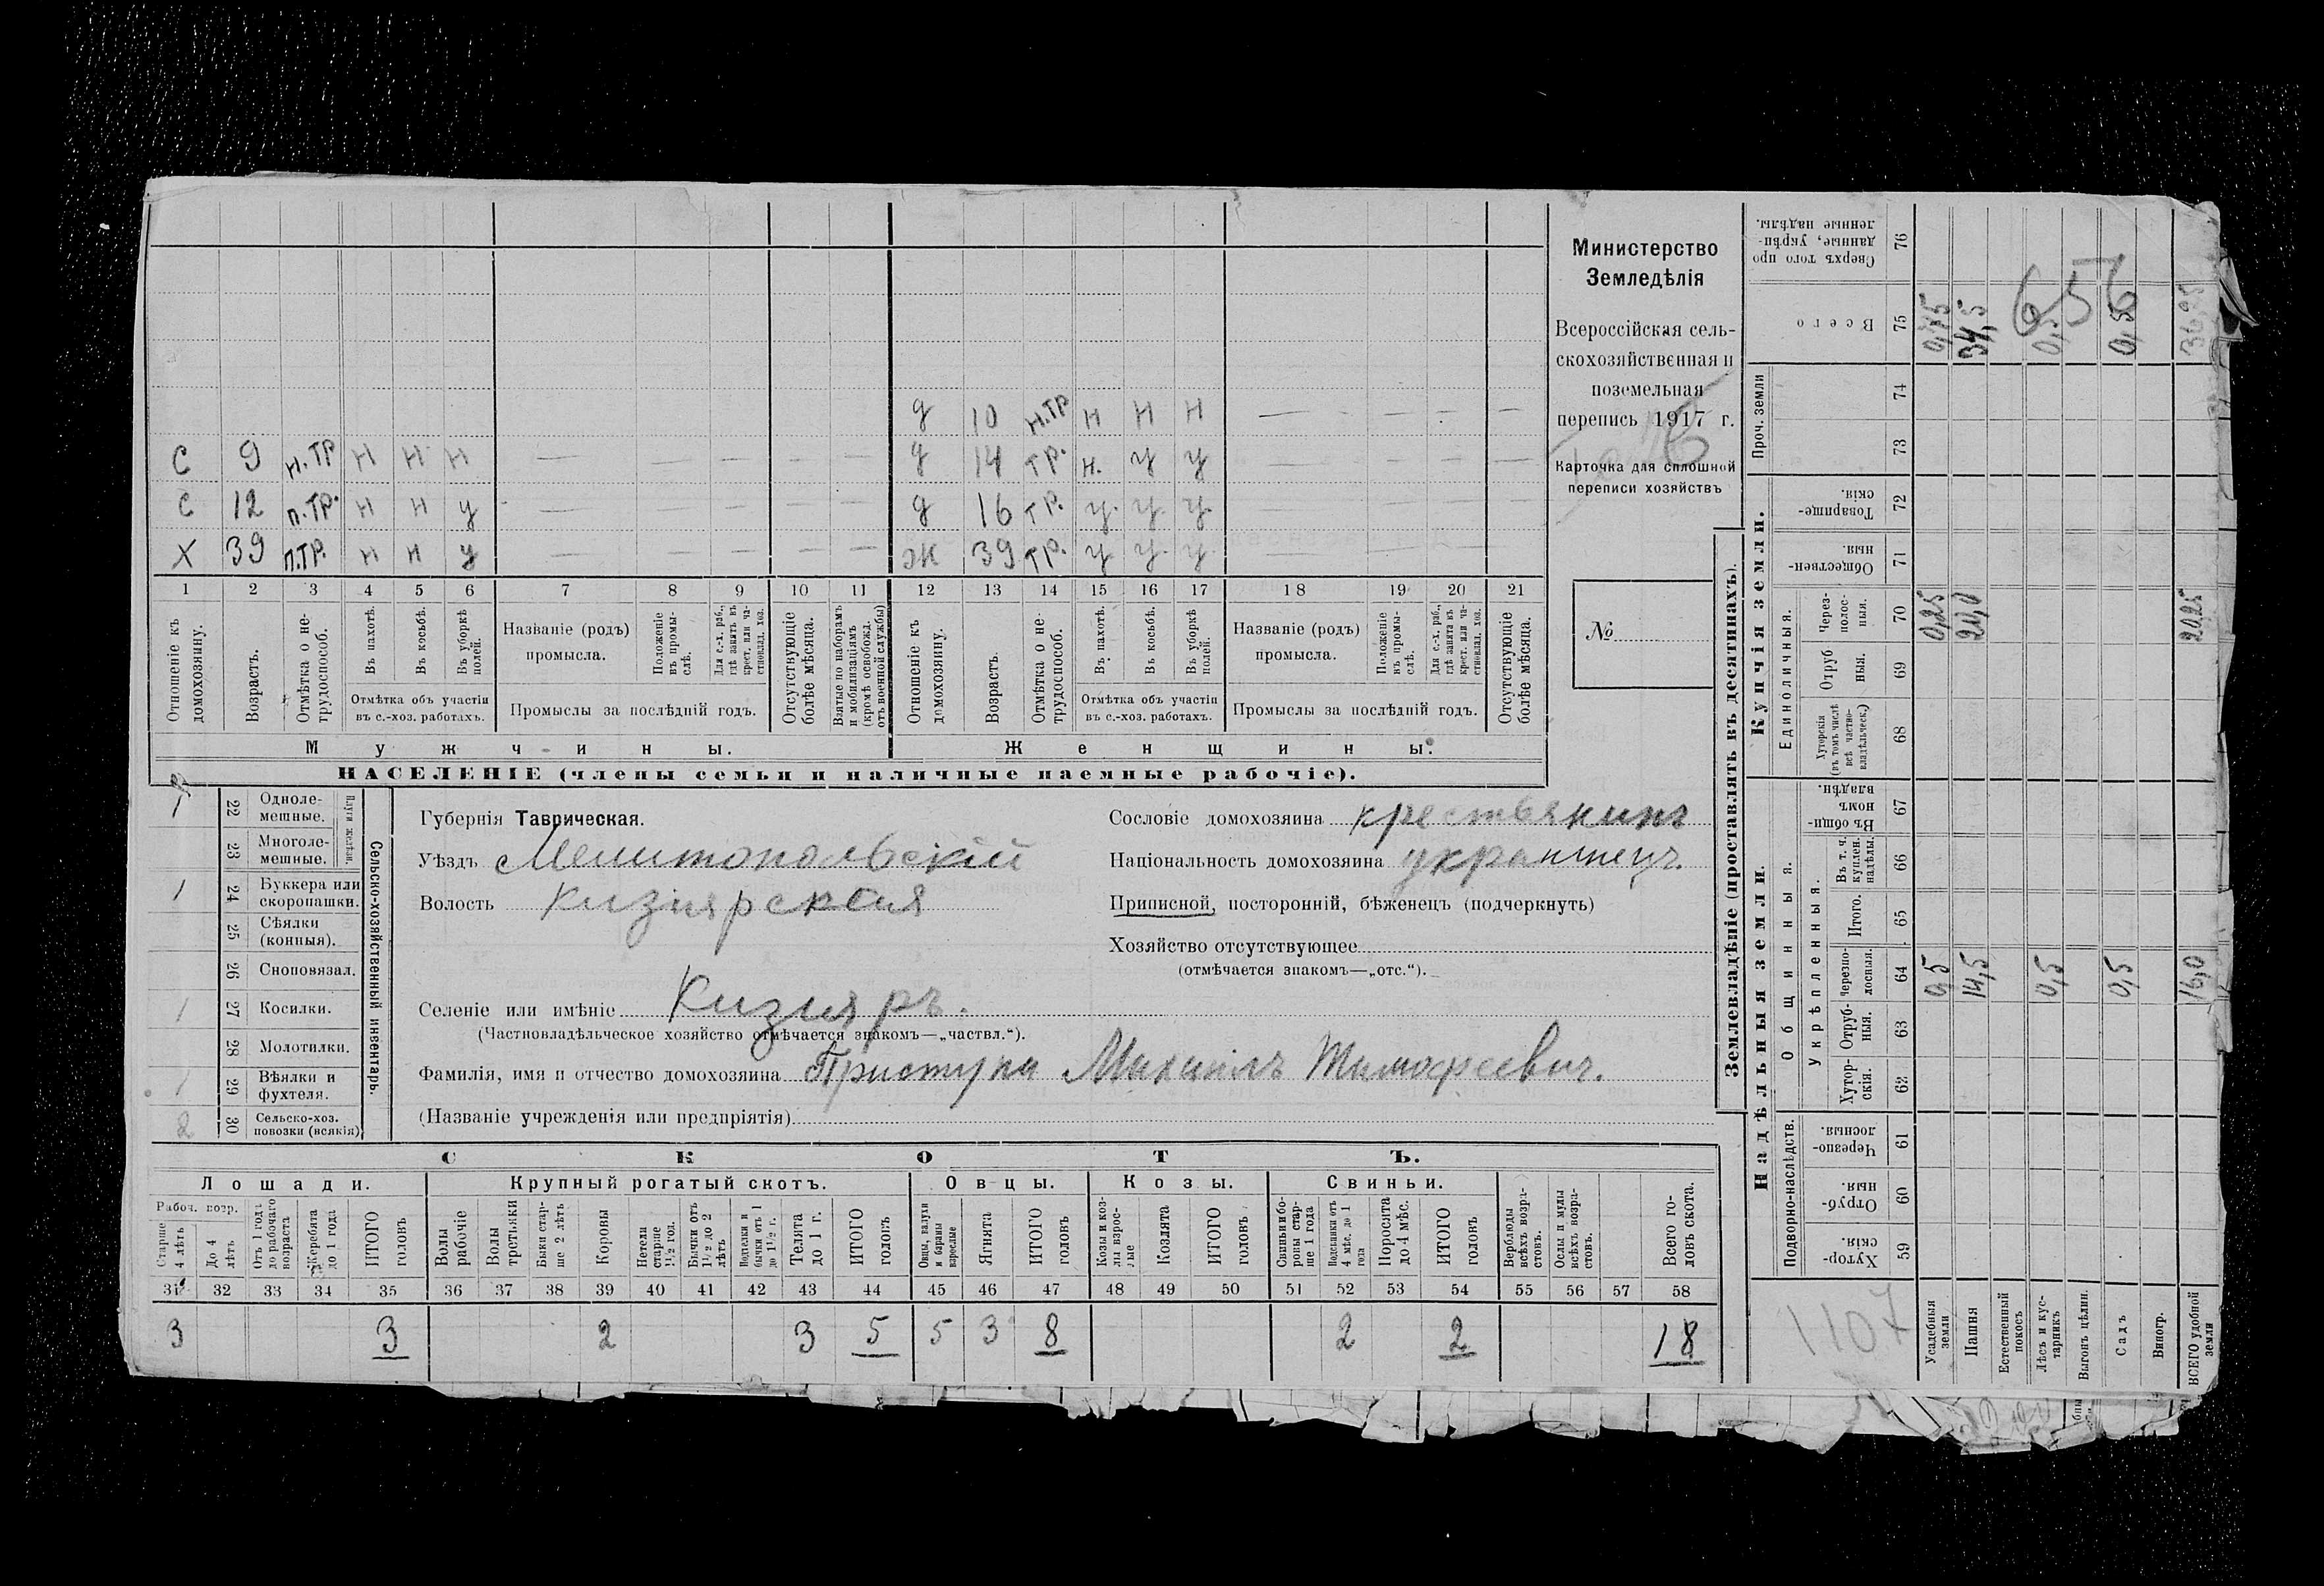 д 10 н.тр н н н — — — — —
с 9 н.тр н н н — — — — — д 14 тр. н. у у — — — — —
с 12 п.тр. н н у — — — — — д 16 тр. у. у. у. — — — — —
х 39 п.тр. н н у — — — — — ж 39 тр. у у. у. — — — —
1 2 3 4 5 6 7 8 9 10 11 12 13 14 15 16 17 18 19 20 21
Отношеніе къ домохозяину.
Возрастъ.
Отмѣтка о нетрудоспособ.
Въ пахотѣ.
Въ косьбѣ.
Въ уборкѣ полей.
Отмѣтка объ участіи
въ с.-хоз. работахъ.
Названіе (родъ)
промысла.
Положеніе въ промыслѣ.
Для с.-х. раб., гдѣ занятъ въ крест. или частновлад. хоз.
Промыслы за послѣдній годъ.
Отсутствующіе болѣе мѣсяца.
Взятые по наборамъ и мобилизаціямъ (кромѣ освобожд. отъ военной службы)
Отношеніе къ домохозяину.
Возрастъ.
Отмѣтка о нетрудоспособ.
Въ пахотѣ.
Въ косьбѣ.
Въ уборкѣ полей.
Отмѣтка объ участіи
въ с.-хоз. работахъ.
Названіе (родъ)
промысла.
Положеніе въ промыслѣ.
Для с.-х. раб., гдѣ занята въ крест. или частновлад. хоз.
Промыслы за послѣдній годъ.
Отсутствующіе болѣе мѣсяца.
Мужчины.
Женщины.
НАСЕЛЕНІЕ (члены семьи и наличные наемные рабочіе).
Министерство
Земледѣлія
Всероссійская сель-
скохозяйственная и
поземельная
перепись 1917 г.
Карточка для сплошной
переписи хозяйствъ
№
1 22 Одноле-
мешные.
23 Многоле-
мешные.
Плуги желѣзн.
1 24 Буккера или
скоропашки.
25 Сѣялки
(конныя).
26 Сноповязал.
1 27 Косилки.
28 Молотилки.
1 29 Вѣялки и
фухтеля.
2 30 Сельско-хоз.
повозки (всякія)
Сельско-хозяйственный инвентарь.
Губернія Таврическая.
Уѣздъ Мелитопольскій
Волость Кизиярская
Селеніе или имѣніе Кизияръ.
(Частновладѣльческое хозяйство отмѣчается знакомъ—„частвл.“).
Фамилія, имя и отчество домохозяина Приступа Михаилъ Тимофеевич.
(Названіе учрежденія или предпріятія)
Сословіе домохозяина крестьянинъ
Національность домохозяина украинецъ.
Приписной, посторонній, бѣженецъ (подчеркнуть)
Хозяйство отсутствующее
(отмѣчается знакомъ—„отс.“).
СКОТЪ.
Лошади. Крупный рогатый скотъ. Овцы. Козы. Свиньи.
Рабоч. возр.
Старше 4 лѣтъ
До 4 лѣтъ
Отъ 1 года до рабочаго возраста
Жеребята до 1 года
ИТОГО головъ
Волы рабочіе
Волы третьяки
Быки старше 2 лѣтъ
Коровы
Нетели старше 1½ год.
Бычки отъ 1½ до 2 лѣтъ
Подтелки и бычки отъ 1 до 1½ г.
Телята до 1 г.
ИТОГО головъ
Овцы, валухи и бараны взрослые
Ягнята
ИТОГО головъ
Козы и козлы взрослые
Козлята
ИТОГО головъ
Свиньи и боровы старше 1 года
Подсвинки отъ 4 мѣс. до 1 года
Поросята до 4 мѣс.
ИТОГО головъ
Верблюды всѣхъ возрастовъ.
Ослы и мулы всѣхъ возрастовъ.
Всего головъ скота.
31 32 33 34 35 36 37 38 39 40 41 42 43 44 45 46 47 48 49 50 51 52 53 54 55 56 57 58
3 3 2 3 5 5 3 8 2 2 18
Землевладѣніе (проставлять въ десятинахъ).
Надѣльныя земли.
Купчія земли.
Проч. земли
Подворно-наслѣдств.
Общинныя.
Укрѣпленныя.
Единоличныя.
Сверхъ того проданные, укрѣпленные надѣлы. 76
Всего 75 0,75 34,5 0,5 0,5 36,25
656
74
73
Товарищескія. 72
Общественныя. 71
Черезполосныя. 70 0,25 20,0 20,25
Отрубныя. 69
Хуторскія (въ томъ числѣ всѣ частновладѣльческ.) 68
Въ общинномъ владѣн. 67
Въ т. ч. куплен. надѣлы. 66
Итого. 65
Черезполосныя. 64 0,5 14,5 0,5 0,5 16,0
Отрубныя. 63
Хуторскія. 62
Черезполосныя. 61
Отрубныя. 60
Хуторскія. 59
1107
Усадебныя земли
Пашня
Естественный покосъ
Лѣсъ и кустарникъ
Выгонъ цѣлин.
Садъ
Виногр.
ВСЕГО удобной земли